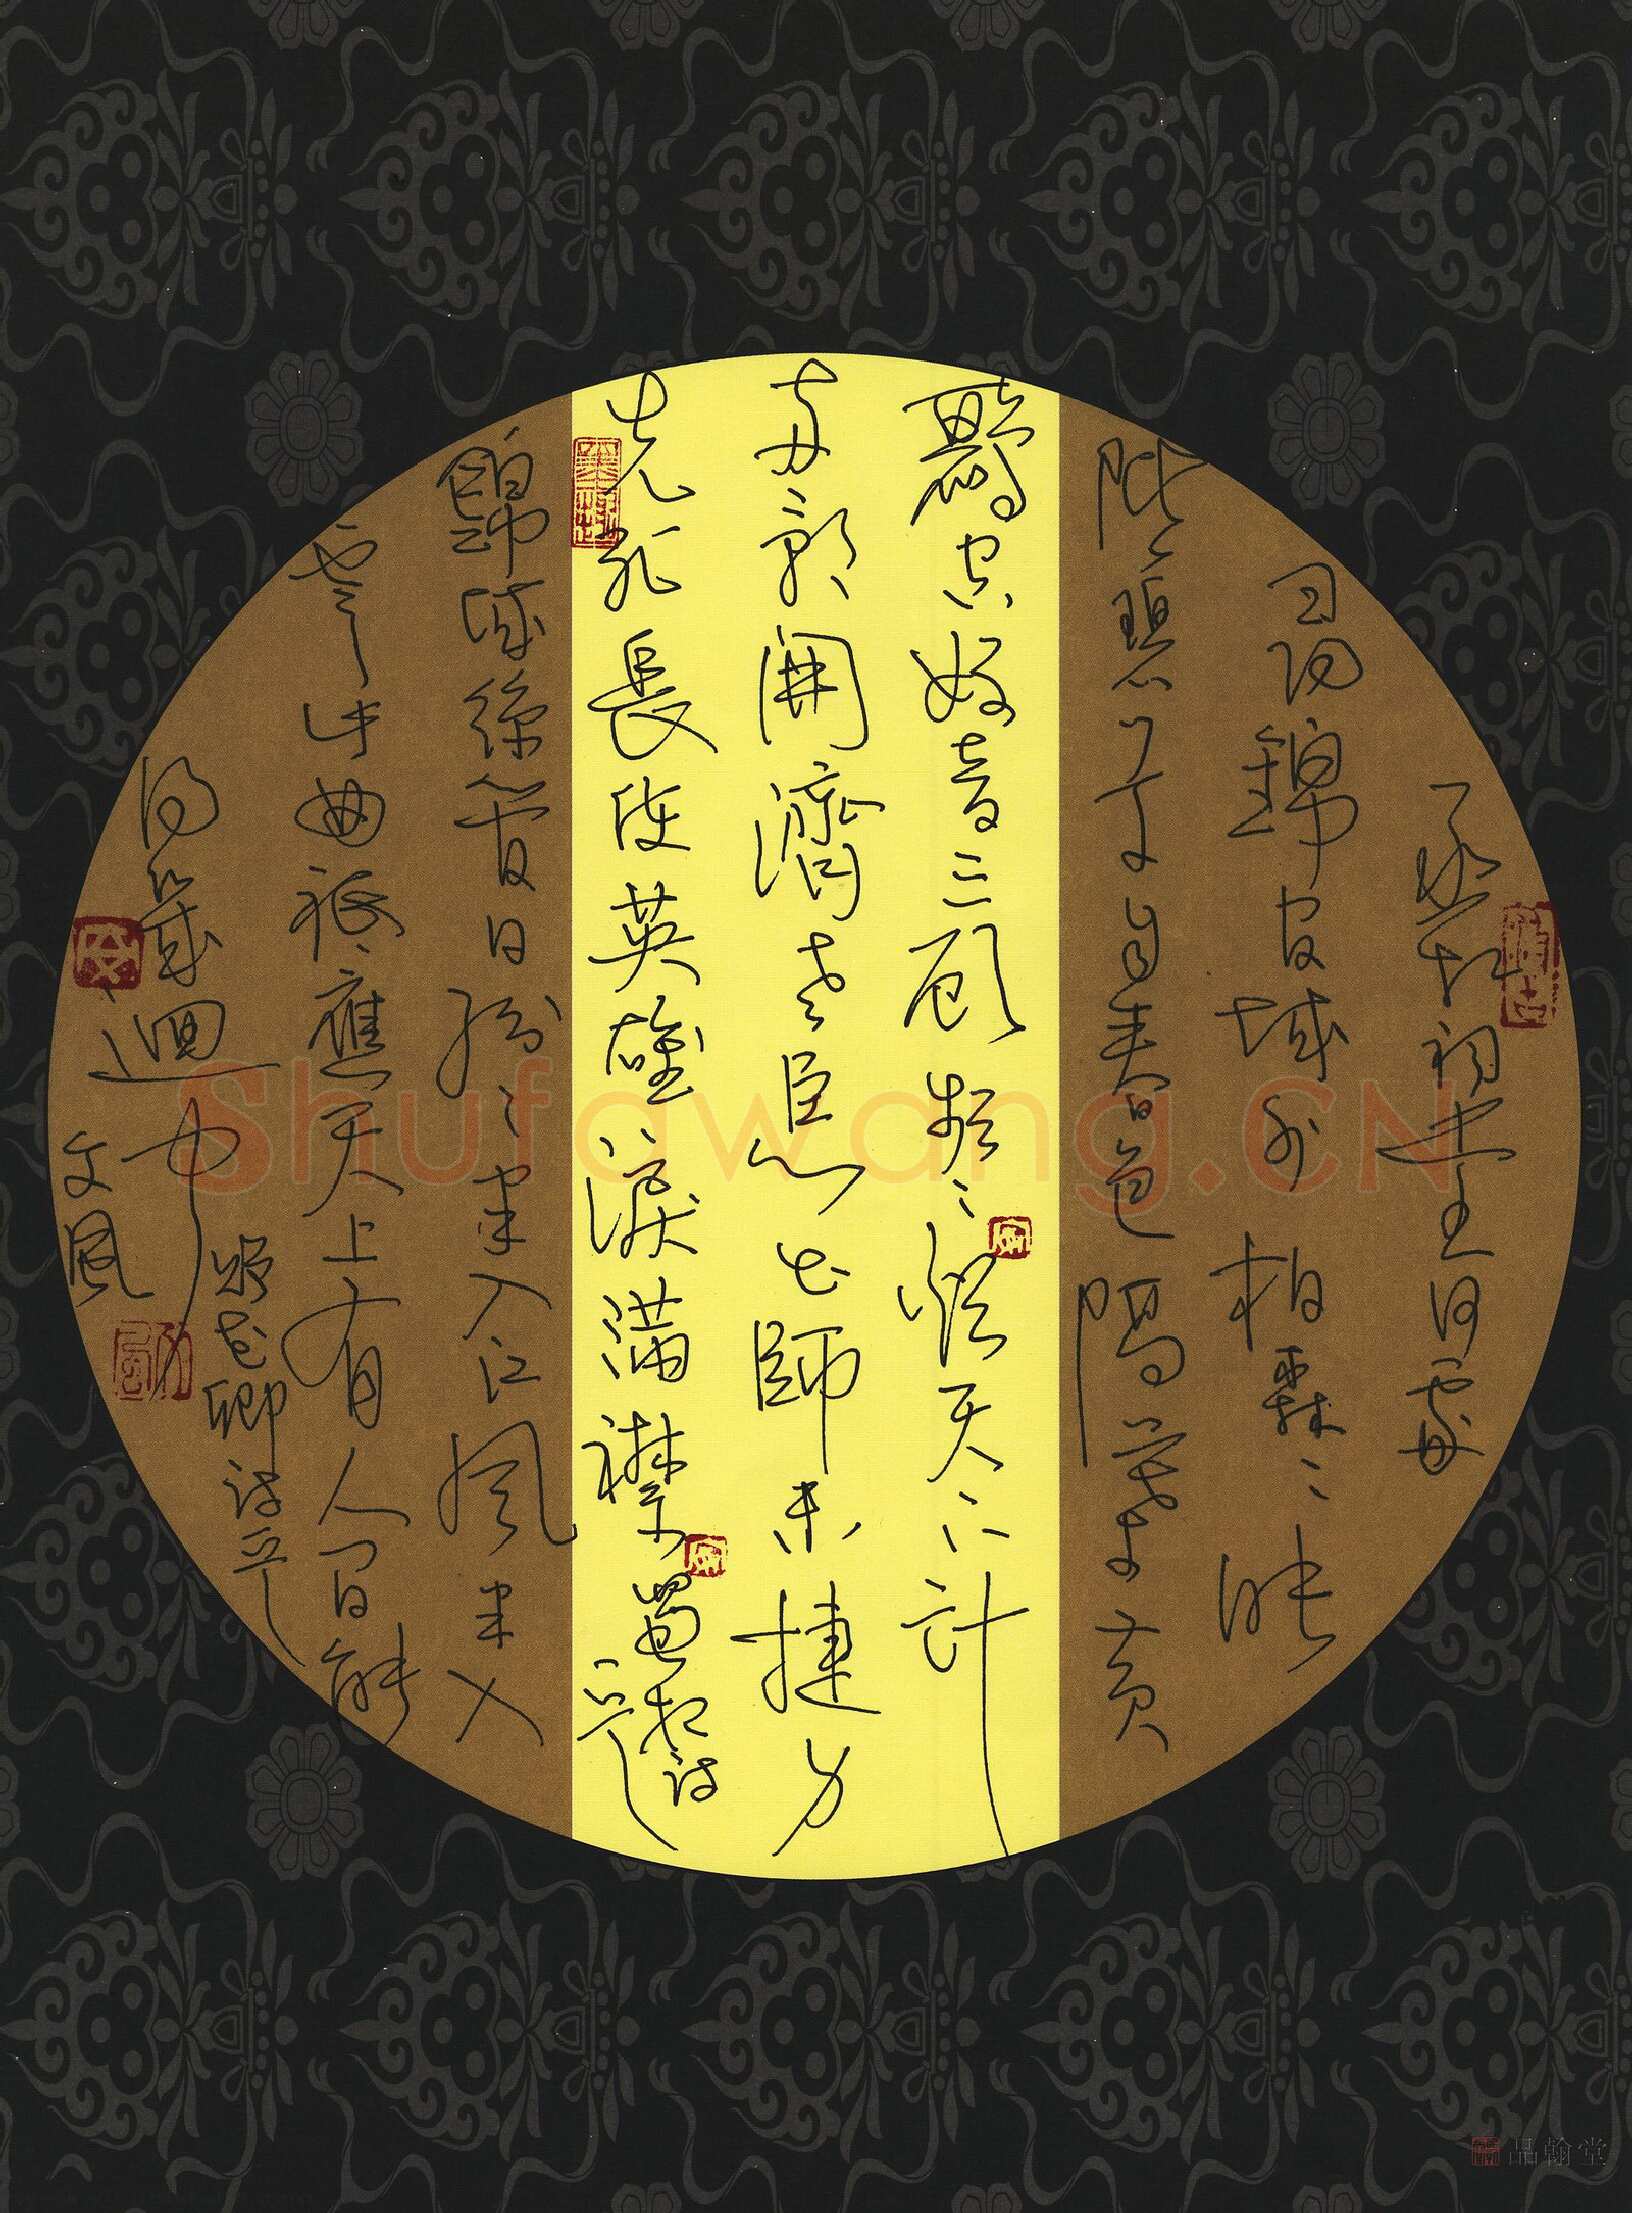 丞相祠堂何處
尋錦官城外柏森〻映
階碧草自春色隔葉黃
鸝空好音三顧頻煩天下計
兩朝開濟老臣心出師未捷身
先死長使英雄淚滿襟
蜀相詩一首
錦城絲管日紛〻半入江風半入
雲此曲衹應天上有人間能
得幾迴聞
贈花卿詩一首
文風
Shufawang.CN
品翰堂